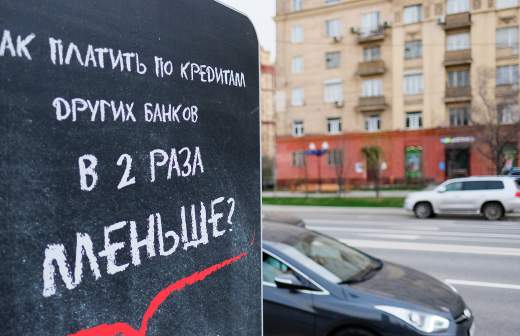 АК ПЛАТИТЬ ПО КРЕДИТАМ
ДРУГИХ БАНКОВ
В 2 РАЗА
МЕНЬШЕ?